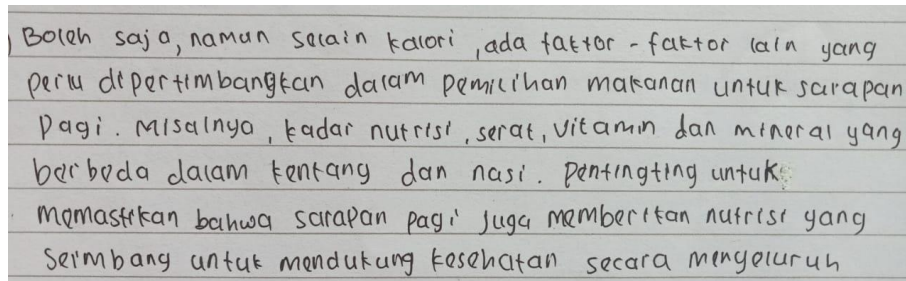 Boleh saja, namun selain kalori, ada faktor-faktor lain yang
perlu dipertimbangkan dalam pemilihan makanan untuk sarapan
pagi. Misalnya, kadar nutrisi, serat, vitamin dan mineral yang
berbeda dalam kentang dan nasi. Pentingting untuk
memastikan bahwa sarapan pagi juga memberikan nutrisi yang
Seimbang untuk mendukung kesehatan secara menyeluruh